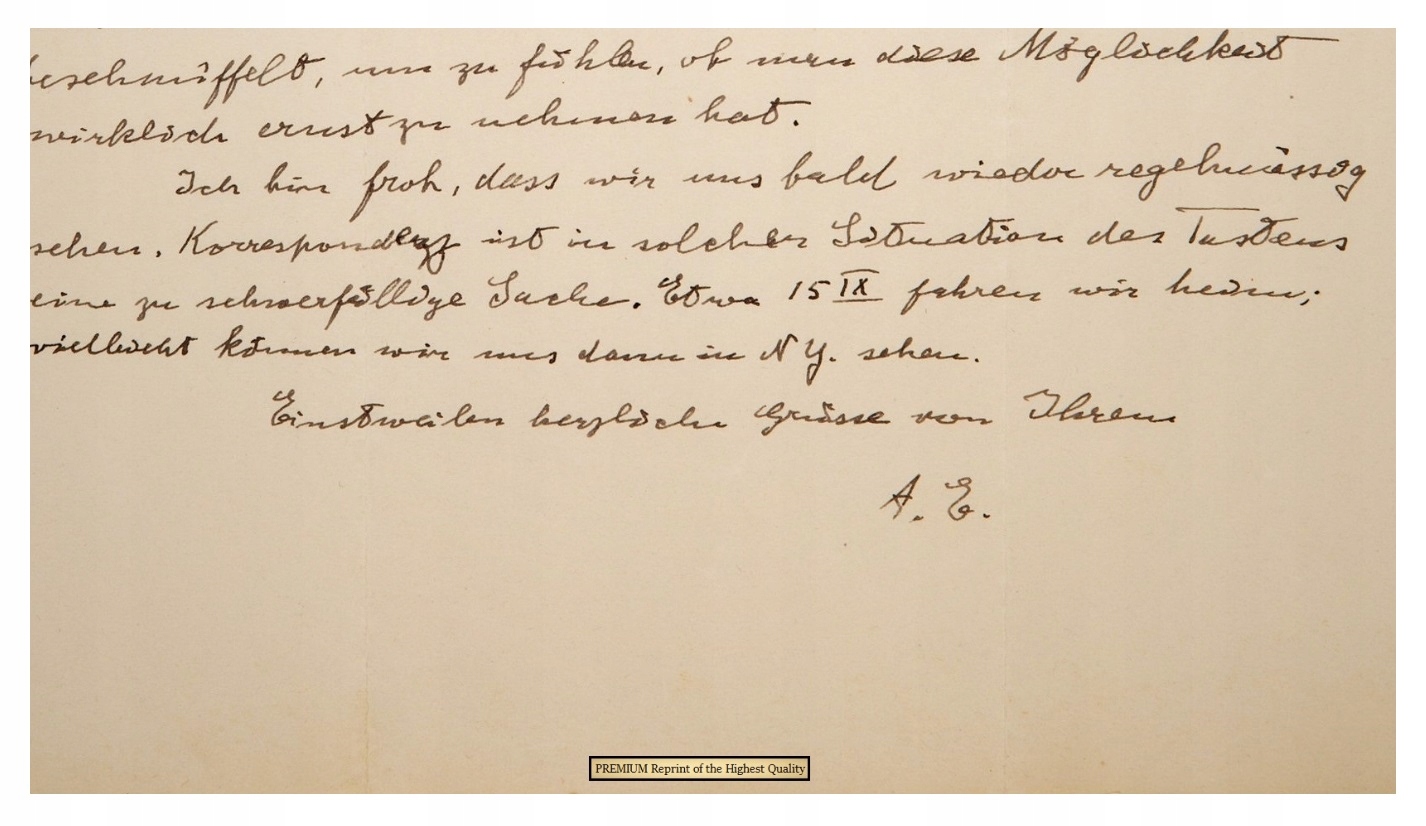 beschnüffelt, um zu fühlen, ob man diese Möglichkeit
wirklich ernst zu nehmen hat.
Ich bin froh, dass wir uns bald wieder regelmässig
sehen. Korrespondenz ist in solcher Situation des Tastens
eine zu schwerfällige Sache. Etwa 15 IX fahren wir heim;
vielleicht können wir uns dann in N Y. sehen.
Einstweilen herzliche Grüsse von Ihrem
A. E.
PREMIUM Reprint of the Highest Quality